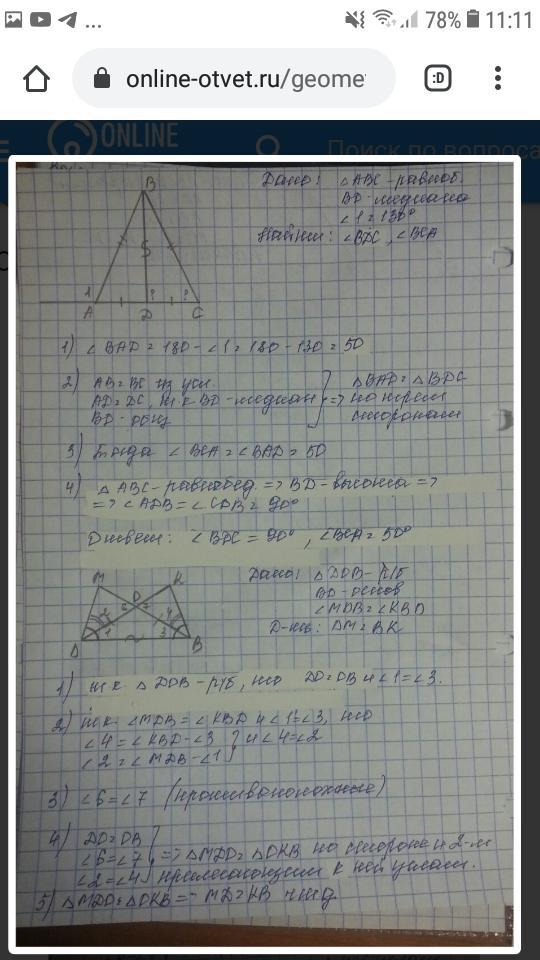 ... 78% 11:11
online-otvet.ru/geome :D
ONLINE
Поиск по вопроса
Дано: △ABC-равноб.
BD-медиана
∠1=130°
Найти: ∠BDC, ∠BCA
B
1 ? ?
A D C
1) ∠BAD = 180-∠1 = 180-130=50
2) AB=BC из усл.
AD=DC, т.к BD-медиан => △BAD=△BDC
BD-общ по трем
сторонам
3) Тогда ∠BCA=∠BAD=50
4) △ABC-равнобед. => BD-высота =>
=> ∠ADB=∠CDB=90°
Ответ: ∠BDC=90°, ∠BCA=50°
M K
O
6 7
2 4
1 3
D B
Дано: △DOB-р/б
BD-основ
∠MDB=∠KBD
Д-ть: DM=BK
1) т.к. △DOB-р/б, то DO=OB и ∠1=∠3.
2) т.к. ∠MDB=∠KBD и ∠1=∠3, то
∠4=∠KBD-∠3
∠2=∠MDB-∠1 и ∠4=∠2
3) ∠6=∠7
4) DO=OB
∠6=∠7 => △MDO=△OKB по стороне и 2-м
∠2=∠4 прилегающим к ней углам.
5) △MDO=△OKB => MD=KB чтд.